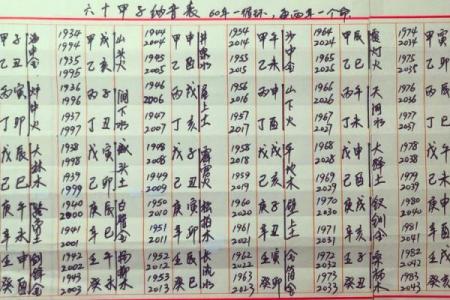 六十甲子纳音表 60年一循环,每两年一个命.
甲子 海中金 1934 1994 甲戌 山头火 1944 2004 甲申 井泉水 1954 2014 甲午 沙中金 1964 2024 甲辰 覆灯火 1974 2034 甲寅
乙丑 1935 1995 乙亥 1945 2005 乙酉 1955 2015 乙未 1965 2025 乙巳 1975 2035 乙卯
丙寅 炉中火 1936 1996 丙子 涧下水 1946 2006 丙戌 屋上土 1956 2016 丙申 山下火 1966 2026 丙午 天河水 1976 2036 丙辰
丁卯 1937 1997 丁丑 1947 2007 丁亥 1957 2017 丁酉 1967 2027 丁未 1977 2037 丁巳
戊辰 大林木 1938 1998 戊寅 城头土 1948 2008 戊子 霹雳火 1958 2018 戊戌 平地木 1968 2028 戊申 大驿土 1978 2038 戊午
己巳 1939 1999 己卯 1949 2009 己丑 1959 2019 己亥 1969 2029 己酉 1979 2039 己未
庚午 路旁土 1940 2000 庚辰 白腊金 1950 2010 庚寅 松柏木 1960 2020 庚子 壁上土 1970 2030 庚戌 钗钏金 1980 2040 庚申
辛未 1941 2001 辛巳 1951 2011 辛卯 1961 2021 辛丑 1971 2031 辛亥 1981 2041 辛酉
壬申 剑锋金 1942 2002 壬午 杨柳木 1952 2012 壬辰 长流水 1962 2022 壬寅 金箔金 1972 2032 壬子 桑柘木 1982 2042 壬戌
癸酉 1943 2003 癸未 1953 2013 癸巳 1963 2023 癸卯 1973 2033 癸丑 1983 2043 癸亥